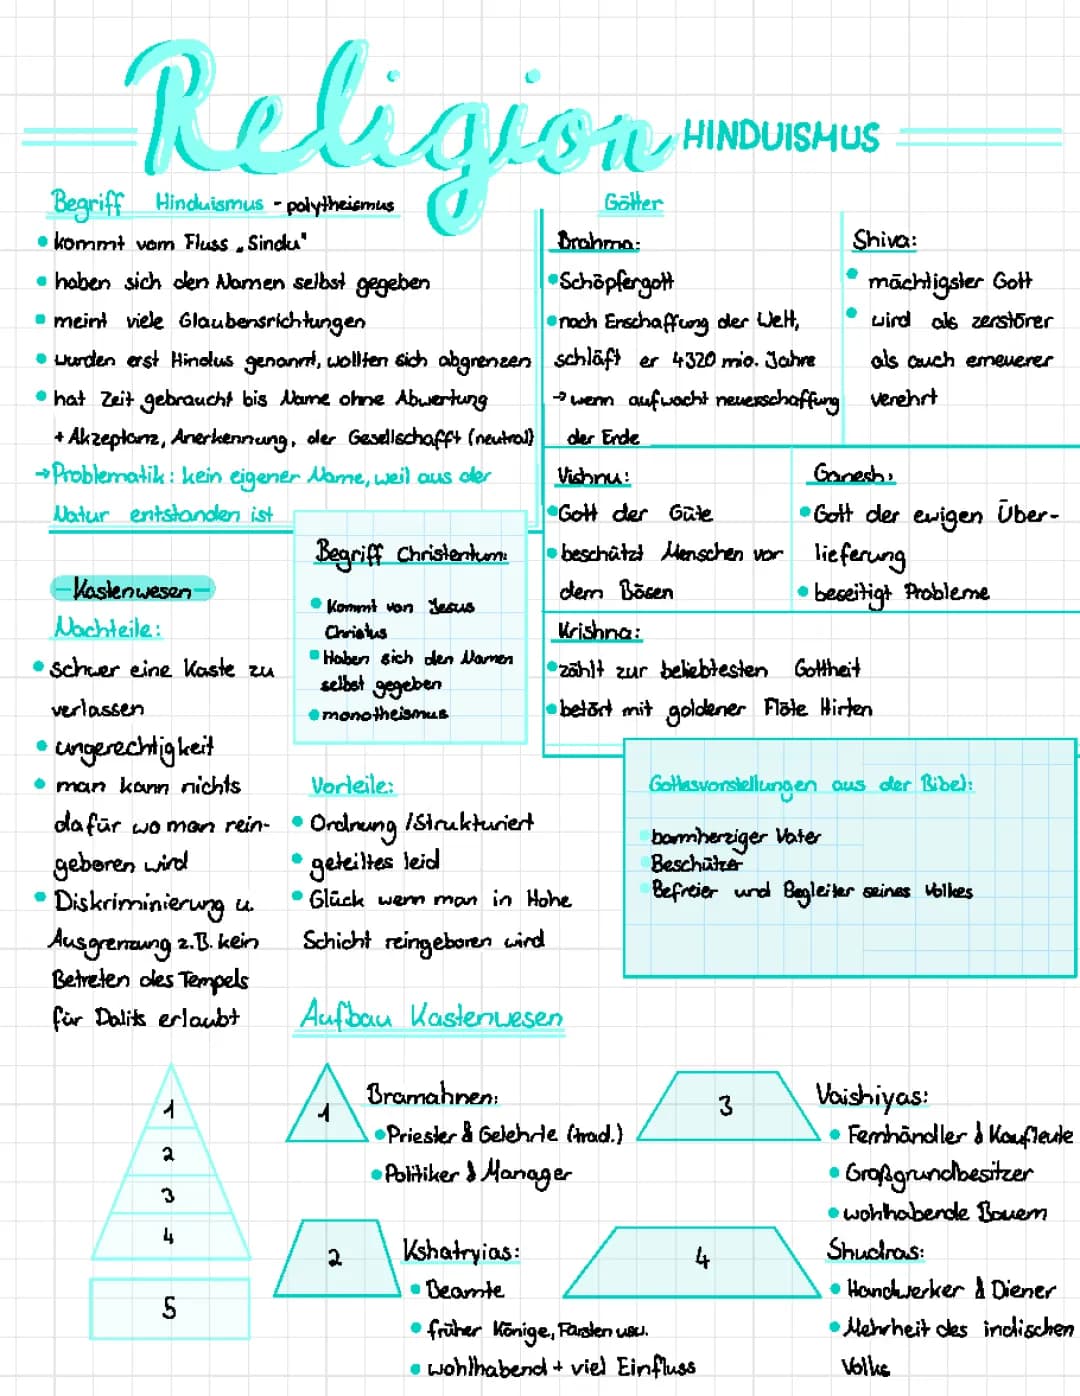 Religion HINDUISMUS
Begriff Hinduismus - polytheismus
• kommt vom Fluss „Sindu"
• haben sich den Namen selbst gegeben
• meint viele Glaubensrichtungen
• wurden erst Hindus genannt, wollten sich abgrenzen
• hat Zeit gebraucht bis Name ohne Abwertung
+ Akzeptanz, Anerkennung, der Gesellschafft (neutral)
→ Problematik: kein eigener Name, weil aus der
Natur entstanden ist
Götter
Brahma:
• Schöpfergott
• nach Erschaffung der Welt,
schläft er 4320 mio. Jahre
→ wenn aufwacht neuerschaffung
der Erde
Shiva:
• mächtigster Gott
• wird als zerstörer
als auch erneuerer
verehrt
Vishnu:
• Gott der Güte
• beschützt Menschen vor
dem Bösen
Ganesh:
• Gott der ewigen Über-
lieferung
• beseitigt Probleme
Krishna:
• zählt zur beliebtesten Gottheit
• betört mit goldener Flöte Hirten
Begriff Christentum:
• Kommt von Jesus
Christus
• Haben sich den Namen
selbst gegeben
• monotheismus
Kastenwesen
Nachteile:
• schwer eine Kaste zu
verlassen
• ungerechtigkeit
• man kann nichts
dafür wo man rein-
geboren wird
• Diskriminierung u.
Ausgrenzung z.B. kein
Betreten des Tempels
für Dalits erlaubt
Vorteile:
• Ordnung / Strukturiert
• geteiltes leid
• Glück wenn man in Hohe
Schicht reingeboren wird
Gottesvorstellungen aus der Bibel:
barmherziger Vater
Beschützer
Befreier und Begleiter seines Volkes
Aufbau Kastenwesen
1
2
3
4
5
1
Bramahnen:
• Priester & Gelehrte (trad.)
• Politiker & Manager
2
Kshatryias:
• Beamte
• früher Könige, Fürsten usw.
• wohlhabend + viel Einfluss
3
Vaishiyas:
• Fernhändler & Kaufleute
• Großgrundbesitzer
• wohlhabende Bauern
4
Shudras:
• Handwerker & Diener
• Mehrheit des indischen
Volks